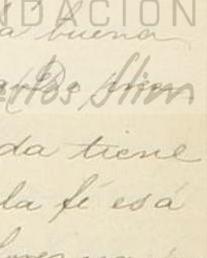 NDACIÓN
a buena
Carlos Slim
da tiene
la fé es á